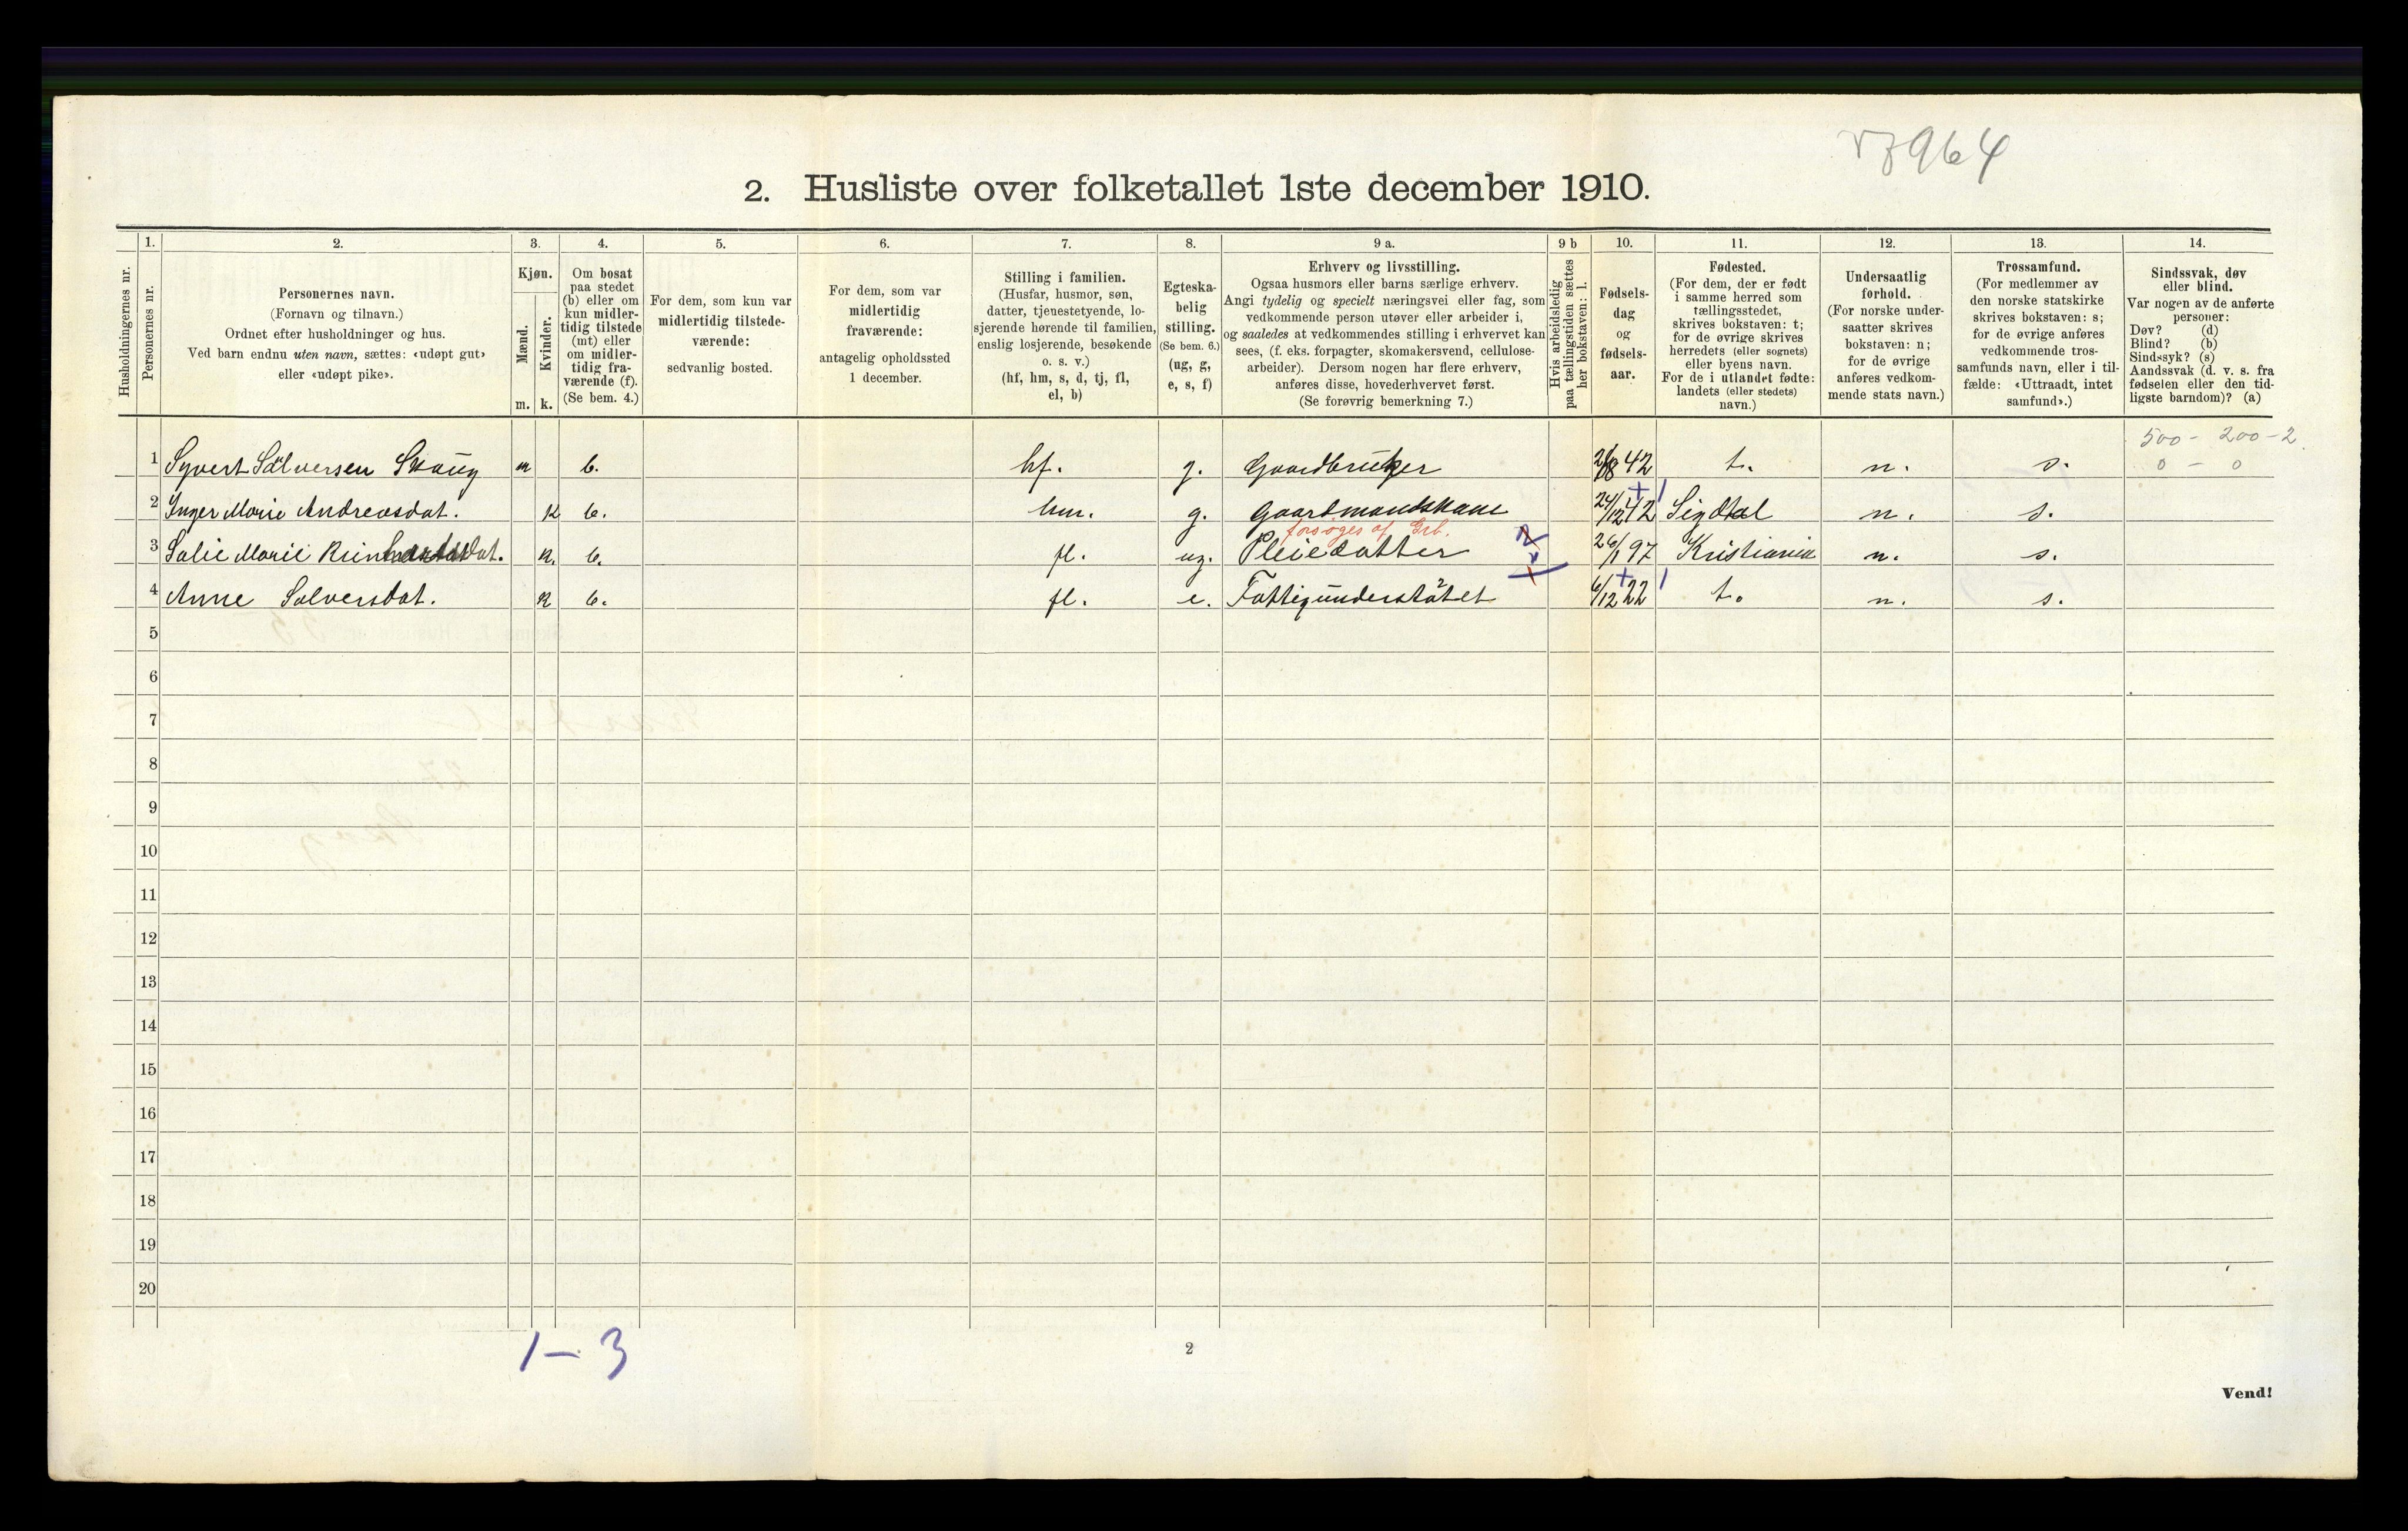 964
2. Husliste over folketallet 1ste december 1910.
Husholdningernes nr.
1.
Personernes nr.
2.
Personernes navn.
(Fornavn og tilnavn.)
Ordnet efter husholdninger og hus.
Ved barn endnu uten navn, sættes: «udøpt gut»
eller «udøpt pike».
3.
Kjøn.
Mænd.
m.
Kvinder.
k.
4.
Om bosat
paa stedet
(b) eller om
kun midler-
tidig tilstede
(mt) eller
om midler-
tidig fra-
værende (f).
(Se bem. 4.)
5.
For dem, som kun var
midlertidig tilstede-
værende:
sedvanlig bosted.
6.
For dem, som var
midlertidig
fraværende:
antagelig opholdssted
1 december.
7.
Stilling i familien.
(Husfar, husmor, søn,
datter, tjenestetyende, lo-
sjerende hørende til familien,
enslig losjerende, besøkende
o. s. v.)
(hf, hm, s, d, tj, fl,
el, b)
8.
Egteska-
belig
stilling.
(Se bem. 6.)
(ug, g,
e, s, f)
9 a.
Erhverv og livsstilling.
Ogsaa husmors eller barns særlige erhverv.
Angi tydelig og specielt næringsvei eller fag, som
vedkommende person utøver eller arbeider i,
og saaledes at vedkommendes stilling i erhvervet kan
sees, (f. eks. forpagter, skomakersvend, cellulose-
arbeider). Dersom nogen har flere erhverv,
anføres disse, hovederhvervet først.
(Se forøvrig bemerkning 7.)
9 b
Hvis arbeidsledig
paa tællingstiden sættes
her bokstaven: l.
10.
Fødsels-
dag
og
fødsels-
aar.
11.
Fødested.
(For dem, der er født
i samme herred som
tællingsstedet,
skrives bokstaven: t;
for de øvrige skrives
herredets (eller sognets)
eller byens navn.
For de i utlandet fødte:
landets (eller stedets)
navn.)
12.
Undersaatlig
forhold.
(For norske under-
saatter skrives
bokstaven: n;
for de øvrige
anføres vedkom-
mende stats navn.)
13.
Trossamfund.
(For medlemmer av
den norske statskirke
skrives bokstaven: s;
for de øvrige anføres
vedkommende tros-
samfunds navn, eller i til-
fælde: «Uttraadt, intet
samfund».)
14.
Sindssvak, døv
eller blind.
Var nogen av de anførte
personer:
Døv? (d)
Blind? (b)
Sindssyk? (s)
Aandssvak (d. v. s. fra
fødselen eller den tid-
ligste barndom)? (a)
500 - 200 - 2
0 - 0
1 Syvert Sålversen Skaug m b. hf. g. Gaardbruker 2/8 42 t. n. s.
2 Inger Marie Andreasdat. k b. hm. g. Gaardmandskane 24/12 42 Sigdal n. s.
forsøges af Grb.
3 Salie Marie dat. k. b. fl. ug. Pleiedatter 26/1 97 Kristiania n. s.
4 Anne Solversdat. k b. fl. e. Fattigunderstøtet 6/12 22 t. n. s.
5
6
7
8
9
10
11
12
13
14
15
16
17
18
19
20
1 - 3
2
Vend!